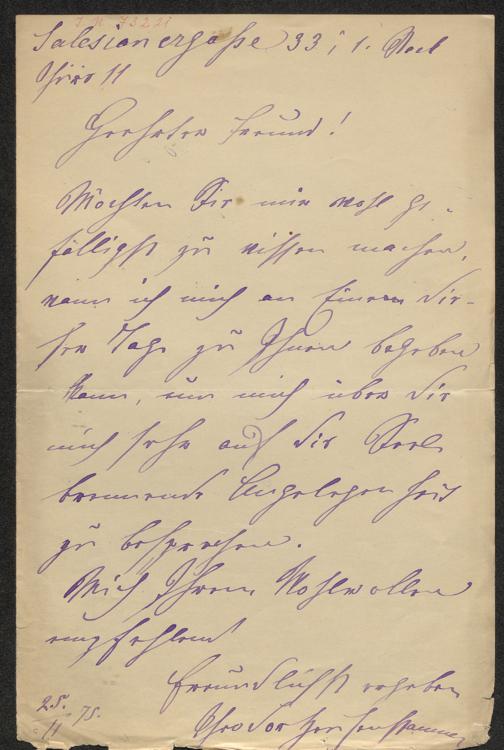 I.N. 73221
Salesianergaße 33, 1. Stock
Thür 11
Geehrter Freund!
Möchten Sie mir wohl ge-
fälligst zu wissen machen,
wann ich mich an Einem die-
ser Tage zu Ihnen begeben
kann, um mich über die
mich sehr auf die Seele
brennende Angelegenheit
zu besprechen.
Mich Ihrem Wohlwollen
empfehlend
freundlichst ergeben
25. 75.
11 Theodor